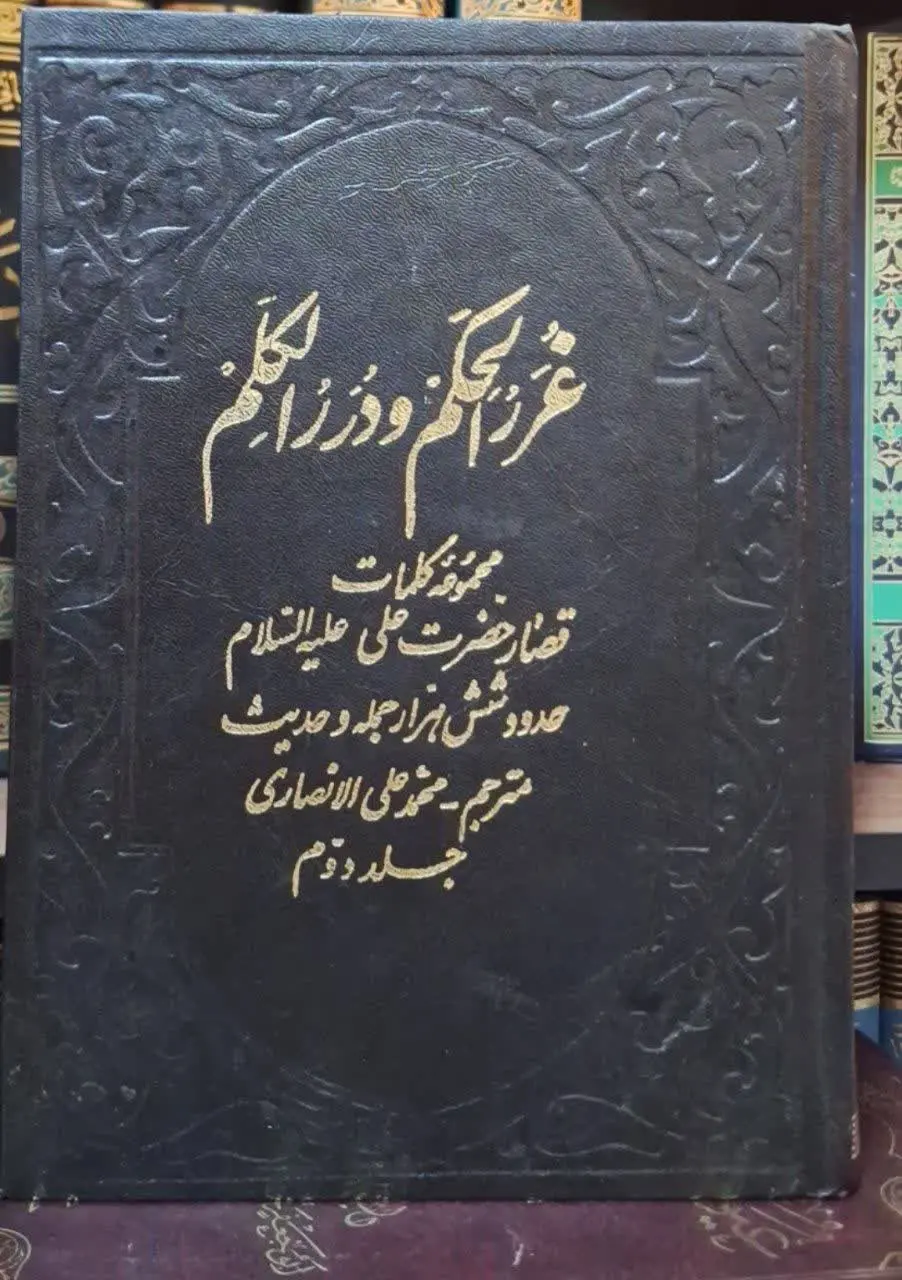 غُرَرُ الْحِکَمْ و دُرَرُ الْکَلِمْ
مجموعهٔ کلمات
قصار حضرت علی علیه السّلام
حدود شش هزار جمله و حدیث
مترجم - محمّد علی الانصاری
جلد دوّم